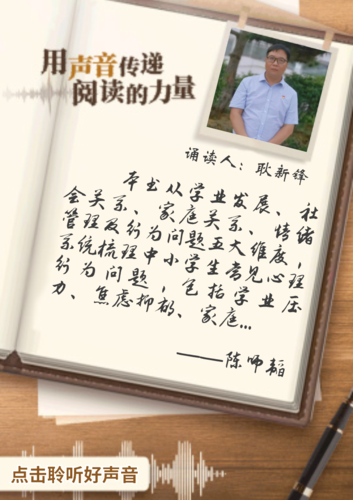 用声音传递
阅读的力量
诵读人：耿新锋
本书从学业发展、社
会关系、家庭关系、情绪
管理及行为问题五大维度，
系统梳理中小学生常见心理
行为问题，包括学业压
力、焦虑抑郁、家庭...
——陈师韬
点击聆听好声音